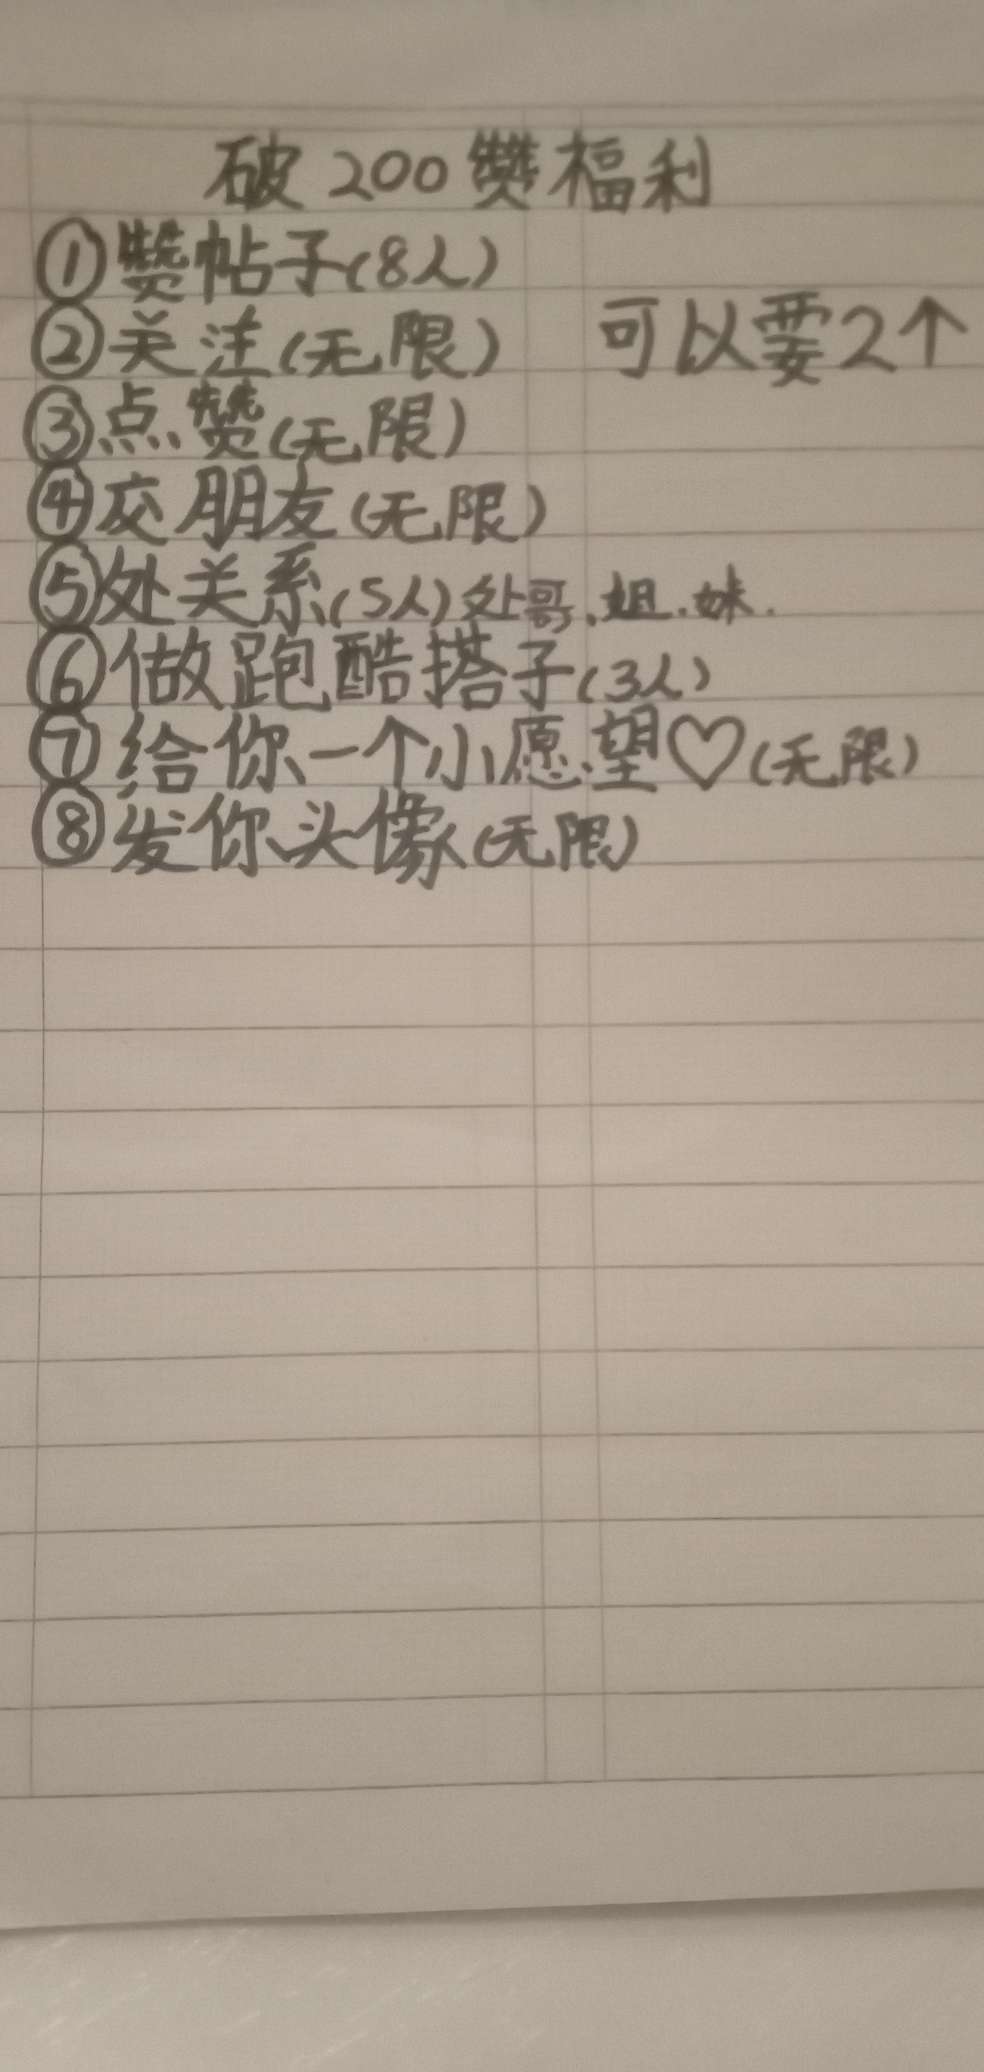 破200赞福利
①赞帖子(8人)
②关注(无限)
可以要2个
③点赞(无限)
④交朋友(无限)
⑤处关系(5人)处哥、姐.妹.
⑥做跑酷搭子(3人)
⑦给你一个小愿望♡(无限)
⑧发你头像(无限)